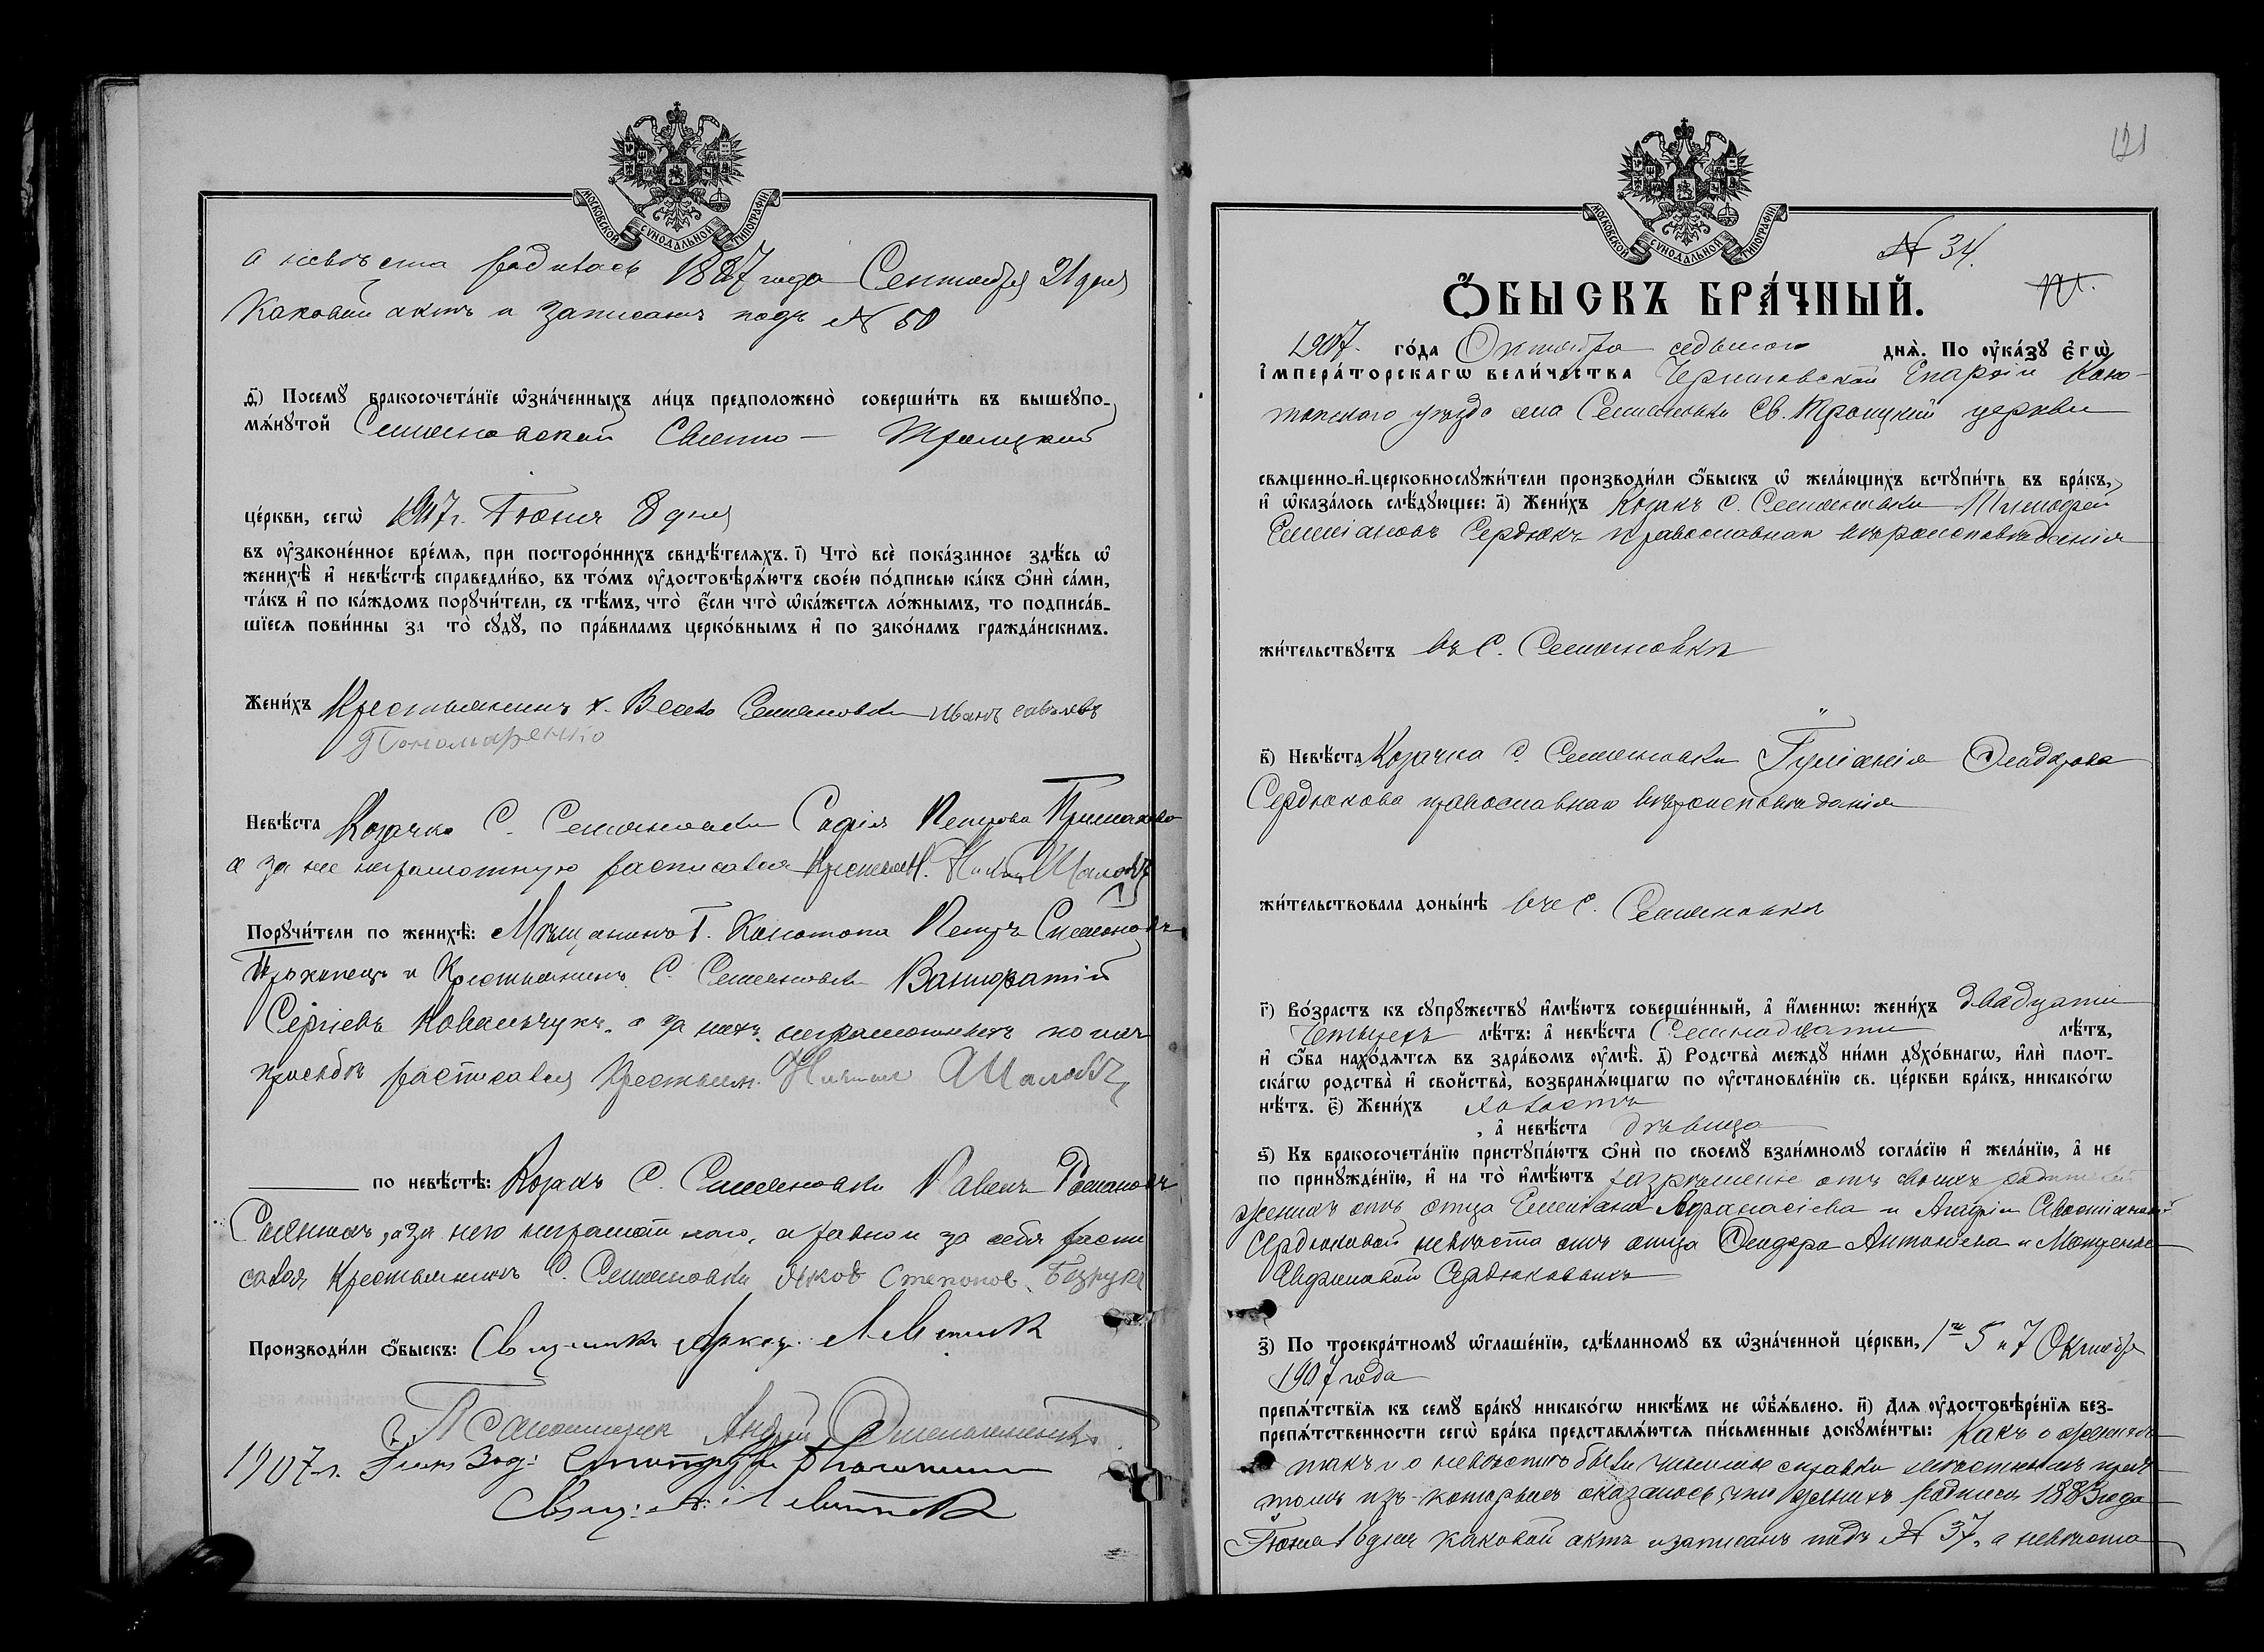 МОСКОВСКОЙ СУНОДАЛЬНОЙ ТИПОГРАФІИ
а невѣста родилась 1887 года Сентября 21 дня
каковой актъ и записанъ подъ № 50
д҃) Посемꙋ бракосочета́нїе ѡ҆зна́ченныхъ ли́цъ предположено̀ соверши́ть въ вышеꙋпо-
мѧ́нꙋтой Семяновской Свято - Троицкой
це́ркви, сегѡ̀ 1907 г. Іюня 8 дня
въ ᲂу҆законе́нное вре́мѧ, при посторо́ннихъ свидѣ́телѧхъ. і҃) Что̀ всѐ пока́занное здѣ́сь ѡ҆
женихѣ̀ и҆ невѣ́стѣ справедли́во, въ то́мъ ᲂу҆достовѣрѧ́ютъ свое́ю по́дписью ка́къ ѻ҆нѝ са́ми,
та́къ и҆ по ка́ждомъ порꙋчи́тели, съ тѣ́мъ, что̀ є҆́сли что̀ ѡ҆ка́жетсѧ ло́жнымъ, то подписа́в-
шїесѧ пови́нны за то̀ сꙋдꙋ̀, по пра́виламъ церко́внымъ и҆ по зако́намъ гражда́нскимъ.
Жени́хъ Крестьянинъ с. Семяновки Иванъ Савельевъ
Пономаренко
Невѣ́ста Козачка С. Семяновки Софія Петрова Примакова
а за нее неграмотную расписался Крестьян. Шаловъ
Порꙋчи́тели по женихѣ̀: Мѣщанинъ г. Конотопа Петръ Симоновъ
Прокопецъ и Крестьянинъ С. Семяновки
Сергіевъ Ковальчукъ, а за нихъ неграмотныхъ по ихъ
просьбѣ расписался Крестьян. Шаловъ
по невѣ́стѣ: Козакъ С. Семяновки Павелъ Романовъ
а за него неграмотнаго, а равно и за себя распи
сался Крестьянинъ С. Семяновки Яковъ Степановъ Безрукъ
Производи́ли ѻ҆́быскъ: Священникъ Левицкій
Псаломщикъ Андрей
1907 г.
Свящ: А. Левицкій
121
МОСКОВСКОЙ СУНОДАЛЬНОЙ ТИПОГРАФІИ
№ 34.
Ѻ҆́БЫСКЪ БРА́ЧНЫЙ.
1907 го́да Октября седьмого днѧ̀. По ᲂу҆ка́зꙋ є҆гѡ̀
і҆мпера́торскагѡ вели́чества Черниговской Епархіи Коно-
топского уѣзда села Семяновки Св. Троицкой церкви
свѧщенно-и҆-церковнослꙋжи́тели производи́ли ѻ҆́быскъ ѡ҆ жела́ющихъ встꙋпи́ть въ бра́къ,
и҆ ѡ҆каза́лось слѣ́дꙋющее: а҃) Жени́хъ Козакъ с. Семяновки Тимофей
Емиліановъ Сердюкъ православнаго вѣроисповѣданія
жи́тельствꙋетъ въ С. Семяновкѣ
в҃) Невѣ́ста Козачка С. Семяновки Іуліанія Феодорова
Сердюкова православнаго вѣроисповѣданія
жи́тельствовала доны́нѣ въ С. Семяновкѣ
г҃) Во́зрастъ къ сꙋпрꙋ́жествꙋ и҆мѣ́ютъ соверше́нный, а҆ и҆́меннѡ: жени́хъ двадцати
четырехъ лѣ́тъ: а҆ невѣ́ста семнадцати лѣ́тъ,
и҆ ѻ҆́ба нахо́дѧтсѧ въ здра́вомъ ᲂу҆мѣ̀. д҃) Родства̀ междꙋ̀ ни́ми дꙋхо́внагѡ, и҆лѝ плот-
ска́гѡ родства̀ и҆ свойства̀, возбранѧ́ющагѡ по ᲂу҆становле́нїю св. це́ркви бра́къ, никако́гѡ
нѣ́тъ. є҃) Жени́хъ холостъ
, а҆ невѣ́ста дѣвица
ѕ҃) Къ бракосочета́нїю пристꙋпа́ютъ ѻ҆нѝ по своемꙋ̀ взаи́мномꙋ согла́сїю и҆ жела́нїю, а҆ не
по принꙋжде́нїю, и҆ на то̀ и҆мѣ́ютъ разрѣшеніе отъ своихъ родителей
женихъ отъ отца Емиліана Афанасіева и Агафіи
Сердюковой невѣста отъ отца Феодора Антоніева и
Сердюковыхъ
з҃) По троекра́тномꙋ ѡ҆глаше́нїю, сдѣ́ланномꙋ въ ѡ҆зна́ченной це́ркви, 1го 5 и 7 Октября
1907 года
препѧ́тствїѧ къ семꙋ̀ бра́кꙋ никако́гѡ никѣ́мъ не ѡ҆б̾ѧ́влено. и҃) Длѧ ᲂу҆достовѣре́нїѧ без-
препѧ́тственности сегѡ̀ бра́ка представлѧ́ютсѧ пи́сьменные докꙋме́нты: Какъ о женихѣ
такъ и о невѣстѣ были чинимы справки мѣстнымъ прич
томъ изъ которыхъ оказалось, что женихъ родился 1883 года
Іюня 16 дня каковой актъ и записанъ подъ № 37, а невѣста